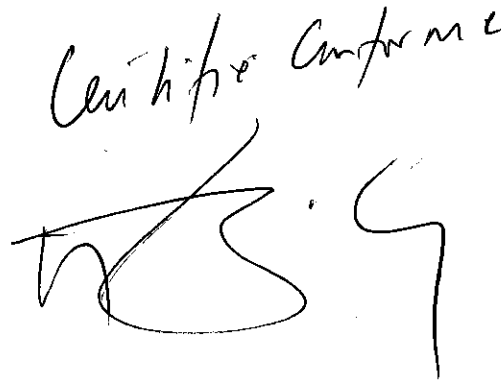 Certifié Conforme